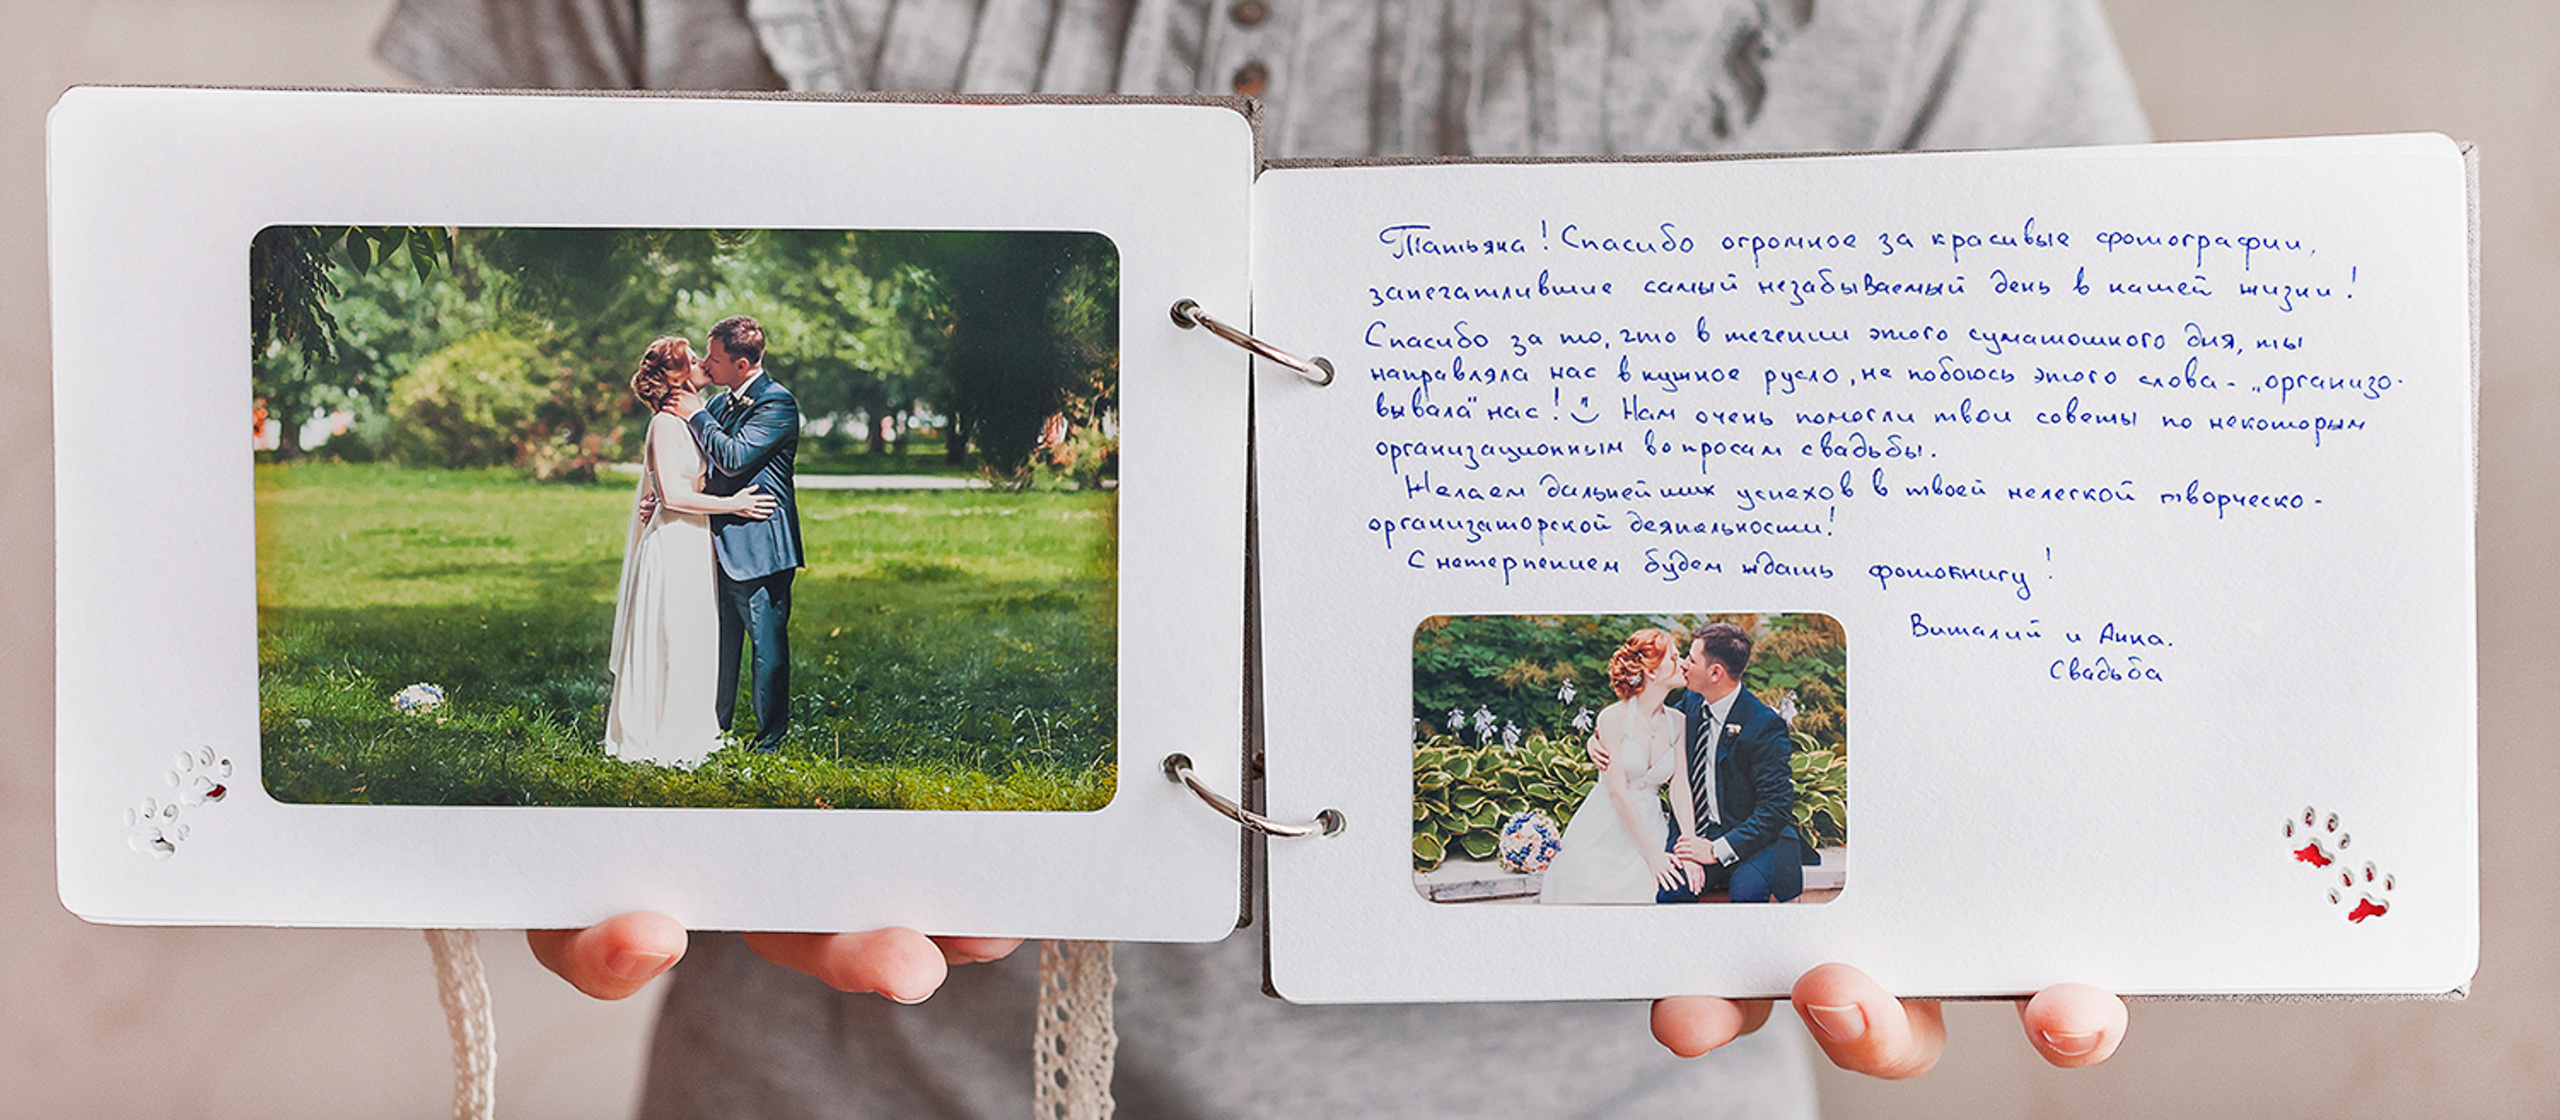 Татьяна! Спасибо огромное за красивые фотографии,
запечатлившие самый незабываемый день в нашей жизни!
Спасибо за то, что в течении этого сумашошного дня, ты
направляла нас в нужное русло, не побоюсь этого слова - „организо-
вывала" нас! Нам очень помогли твои советы по некоторым
организационным вопросам свадьбы.
Желаем дальнейших успехов в твоей нелегкой творческо-
организаторской деятельности!
С нетерпением будем ждать фотокнигу!
Виталий и Анна.
Свадьба